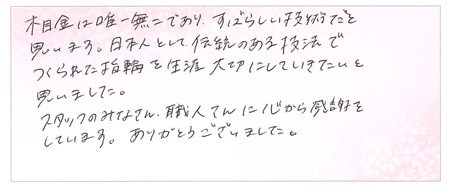 木目金は唯一無二であり、すばらしい技術だと
思います。日本人として、伝統のある技法で
つくられた指輪を生涯大切にしていきたいと
思いました。
スタッフのみなさん、職人さんに心から感謝を
しています。ありがとうございました。